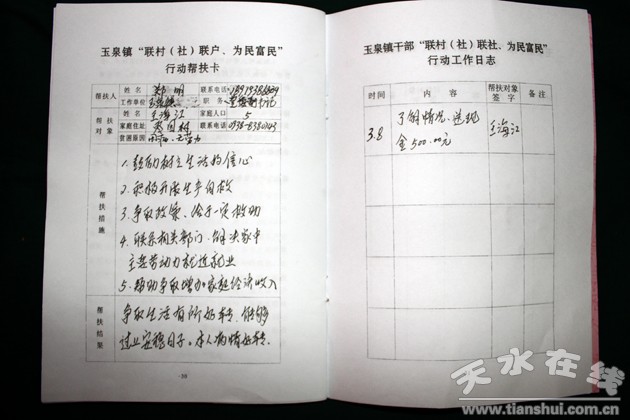 玉泉镇“联村（社）联户、为民富民”
行动帮扶卡
帮扶人 姓名 郑明 联系电话
工作单位 职务
帮扶对象 姓名 王海江 家庭人口 5
家庭住址 联系电话 0938-8380143
贫困原因
帮扶措施
1.鼓励树立生活的信心
2.积极开展生产自救
3.争取政策、给予一定救助
4.联系相关部门.解决家中
主要劳动力就近就业
5.帮助争取增加家庭经济收入
帮扶结果
争取生活有所好转，能够
过上安稳日子。本人病情好转.
·38·
玉泉镇干部“联村（社）联社、为民富民”
行动工作日志
时间 内容 帮扶对象签字 备注
3.8 了解情况、送现
金500.00元 王海江
天水在线
www.tianshui.com.cn